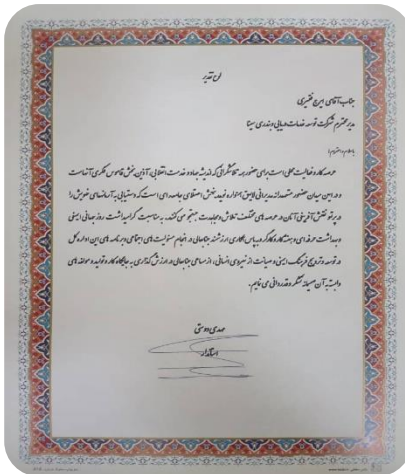 لوح تقدیر
جناب آقای ایرج
مدیر محترم شرکت توسعه خدمات دریایی و بندری سینا
با سلام و احترام؛
عرصه کار و فعالیت محلی است برای حضور همه تلاشگرانی که اندیشه جهاد و خدمت انقلابی، آذین بخش قاموس فکری آنهاست
و در این میدان حضور مقتدرانه مدیرانی لایق همواره نوید بخش اعتلای جامعه ای است که دستیابی به آرمانهای خویش را
در پرتو نقش آفرینی آنان در عرصه های مختلف تلاش و مجاهدت جستجو می کنند. به مناسبت گرامیداشت روز جهانی ایمنی
و بهداشت حرفه ای و هفته کار و کارگر و به پاس همکاری ارزشمند جنابعالی در انجام مسؤلیت های اجتماعی و برنامه های این اداره کل
در توسعه و ترویج فرهنگ ایمنی و صیانت از نیروی انسانی، از مساعی جنابعالی در ارزش گذاری به جایگاه کار و تولید و مولفه های
وابسته به آن صمیمانه تشکر و قدردانی می نمایم.
مهدی دوستی
استاندار